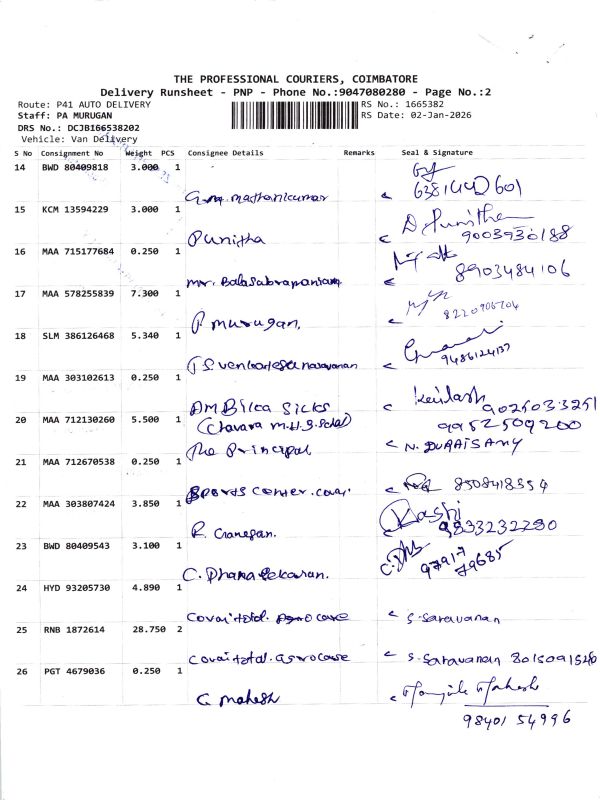 THE PROFESSIONAL COURIERS, COIMBATORE
Delivery Runsheet - PNP - Phone No.:9047080280 - Page No.:2
Route: P41 AUTO DELIVERY RS No.: 1665382
Staff: PA MURUGAN RS Date: 02-Jan-2026
DRS No.: DCJB166538202
Vehicle: Van Delivery
S No Consignment No Weight PCS Consignee Details Remarks Seal & Signature
14 BWD 80409818 3.000 1
G.M. Mathanikumar 6381442601
15 KCM 13594229 3.000 1 D. Punitha
Punitha 9003930188
16 MAA 715177684 0.250 1
mr. Balasubramaniam 8903484106
17 MAA 578255839 7.300 1
P. murugan. 8220906204
18 SLM 386126468 5.340 1
T S venkatesanarayanan 9486124137
19 MAA 303102613 0.250 1
AM Silks Kailash 9025033251
20 MAA 712130260 5.500 1 (Chavara M.H.S.School) 9952509200
The Principal N. DURAISAMY
21 MAA 712670538 0.250 1
Sports center. covai 8508418354
22 MAA 303807424 3.850 1 Kashi
R. Ganesan. 9833232280
23 BWD 80409543 3.100 1
C. Dhanasekaran. 97917
79685
24 HYD 93205730 4.890 1
Covai total. Agro care S. Saravanan
25 RNB 1872614 28.750 2
Covai total. agro care S. Saravanan 8015091520
26 PGT 4679036 0.250 1
G mahesh Mahesh
98401 54996